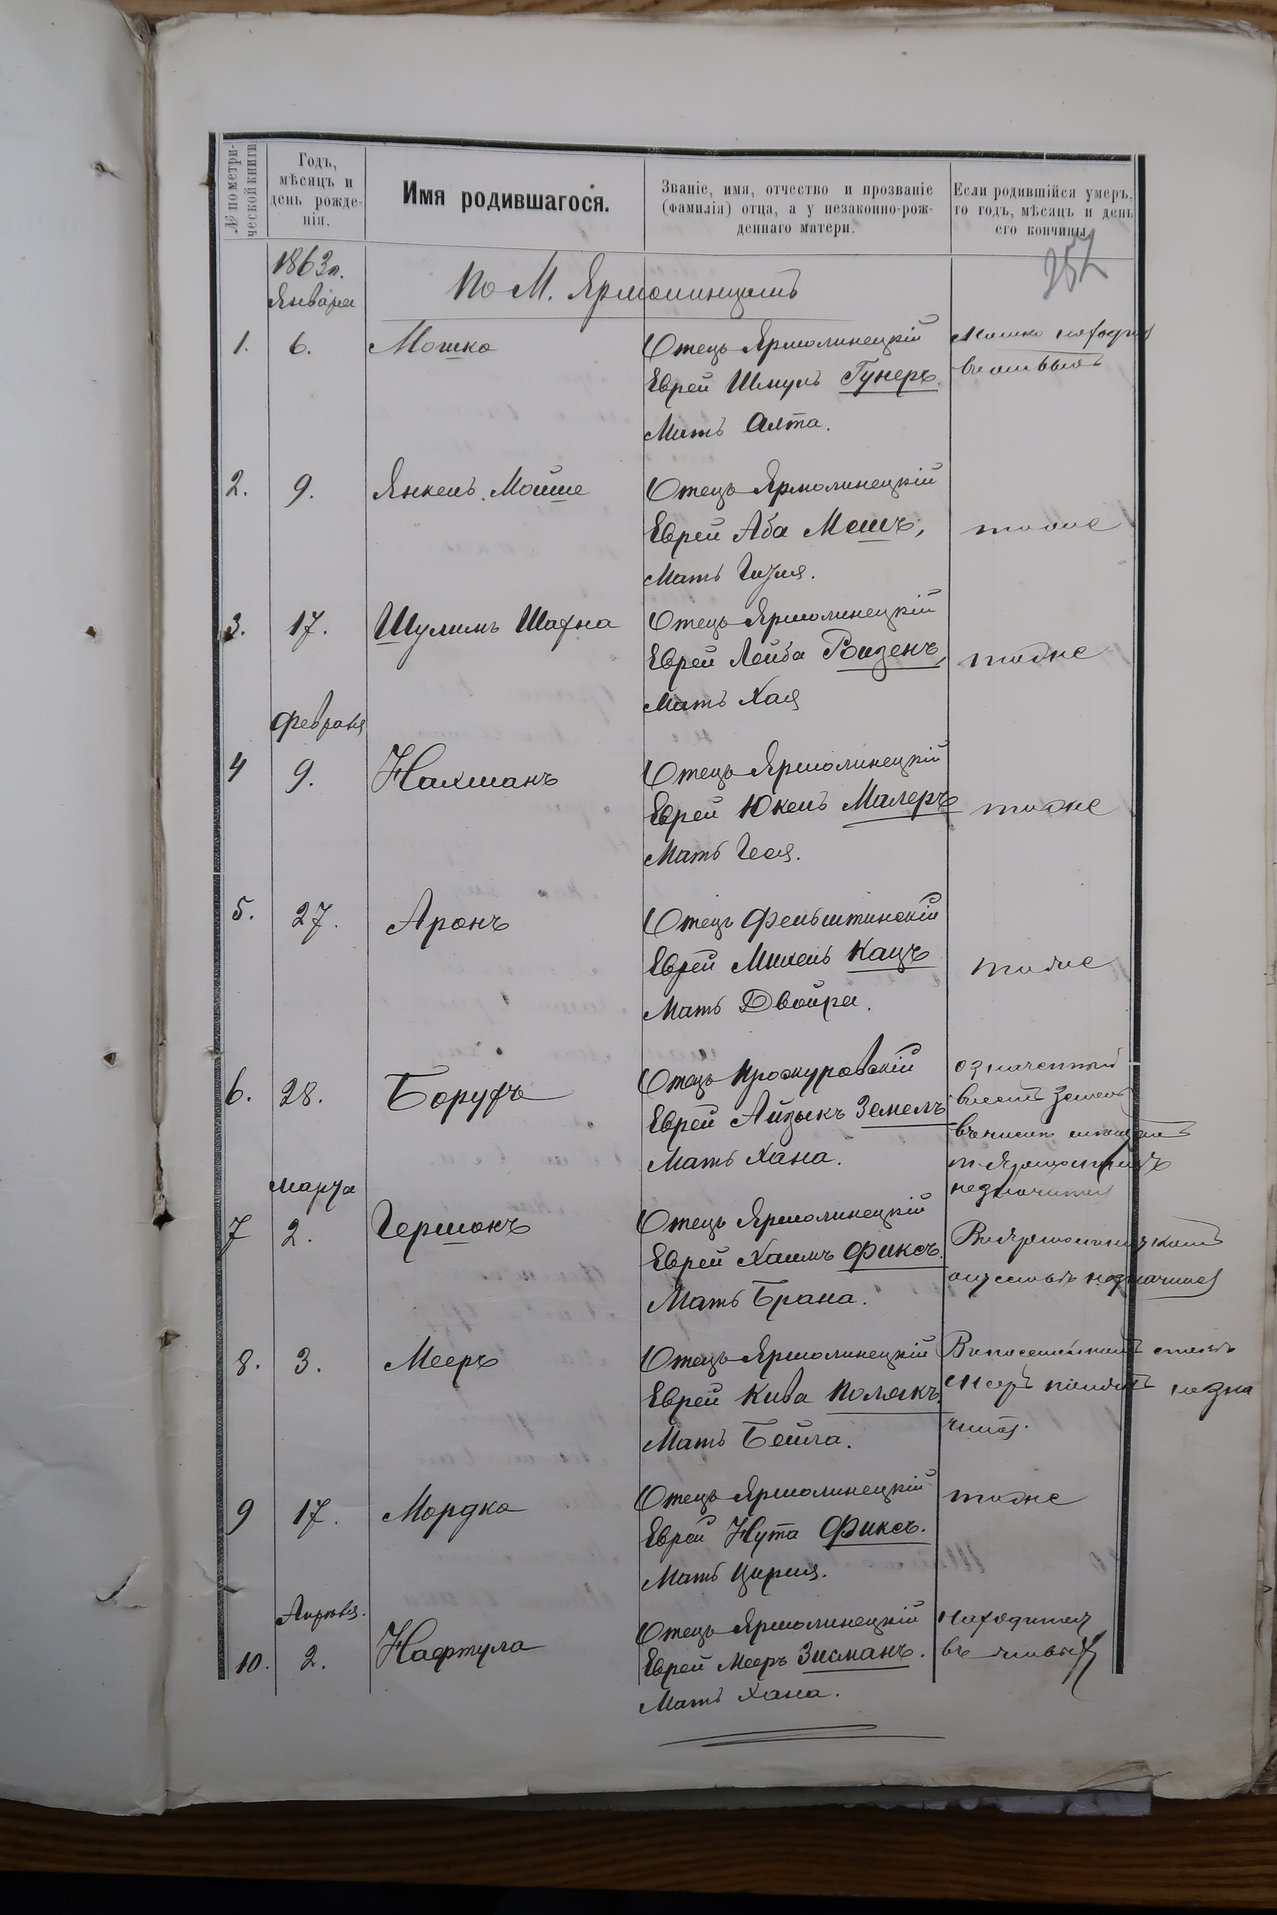 № по метри-
ческой книги
Годъ,
мѣсяцъ и
день рожде-
нія.
Имя родившагося.
Званіе, имя, отчество и прозваніе
(фамилія) отца, а у незаконно-рож-
деннаго матери.
Если родившійся умеръ,
то годъ, мѣсяцъ и день
его кончины.
257
1863 г.
Января
По М. Ярмолинцамъ
1. 6. Мошко
Отецъ Ярмолинецкій
Еврей Шмуль Гунеръ.
Мать Алта.
Мошко находит
2. 9. Янкель Мойше
Отецъ Ярмолинецкій
Еврей Аба Мешъ,
Мать
тоже
3. 17. Шулимъ Шахна
Отецъ Ярмолинецкій
Еврей Лейба Ройзенъ,
Мать Хая
тоже
Февраля
4 9. Нахманъ
Отецъ Ярмолинецкій
Еврей Юкель Малеръ
Мать Гися.
тоже
5. 27. Аронъ
Отецъ Фельштинскій
Еврей Михель Кацъ
Мать Двойра.
тоже
6. 28. Борухъ
Отецъ Проскуровскій
Еврей Айзыкъ Земелъ
Мать Хана.
означенный
незначится
Марта
7 2. Гершонъ
Отецъ Ярмолинецкій
Еврей Хаимъ Фиксъ.
Мать Брана.
незначится
8. 3. Мееръ
Отецъ Ярмолинецкій
Еврей Кива Полякъ.
Мать Бейла.
незна
чится.
9 17. Мордко
Отецъ Ярмолинецкій
Еврей Нута Фиксъ.
Мать Цирля.
тоже
Апреля.
10. 2. Нафтула
Отецъ Ярмолинецкій
Еврей Мееръ Зисманъ.
Мать Хана.
находится
въ